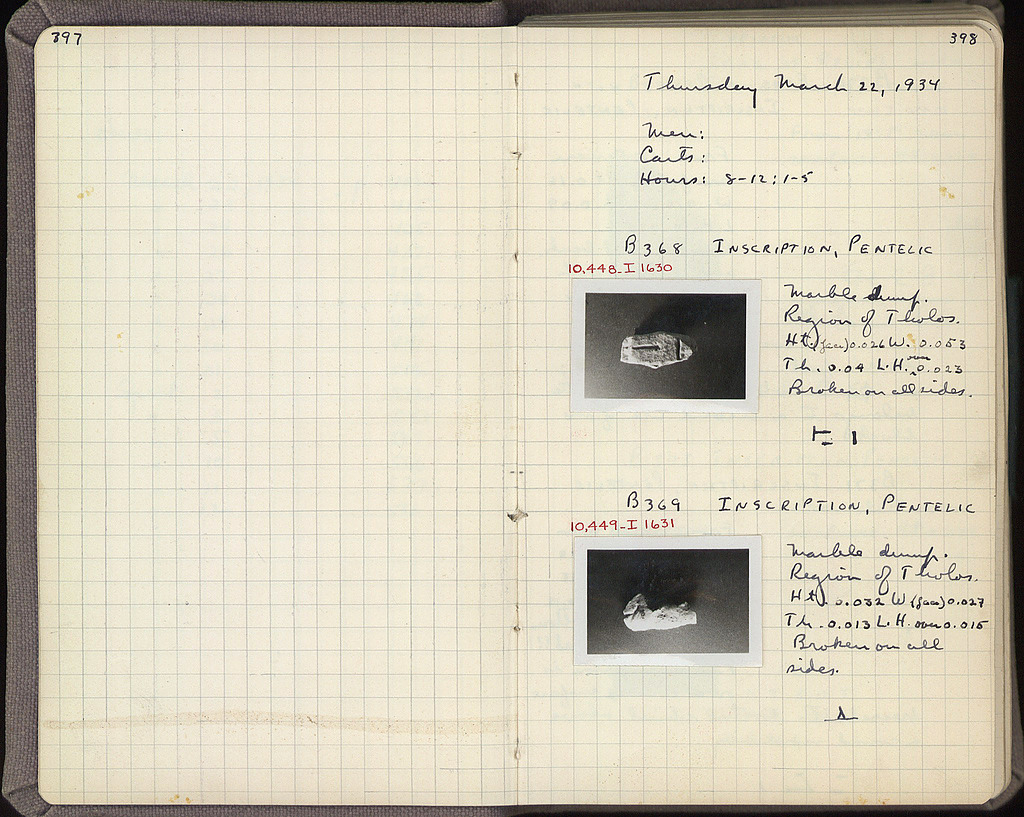 397
398
Thursday March 22, 1934
Men:
Carts:
Hours: 8-12; 1-5
B 368 INSCRIPTION, PENTELIC
10,448-I 1630
Marble dump.
Region of Tholos.
Ht. (face) 0.026 W. 0.053
Th. 0.04 L.H. over 0.023
Broken on all sides.
B 369 INSCRIPTION, PENTELIC
10,449-I 1631
Marble dump.
Region of Tholos.
Ht. 0.032 W (face) 0.027
Th. 0.013 L.H. over 0.015
Broken on all
sides.